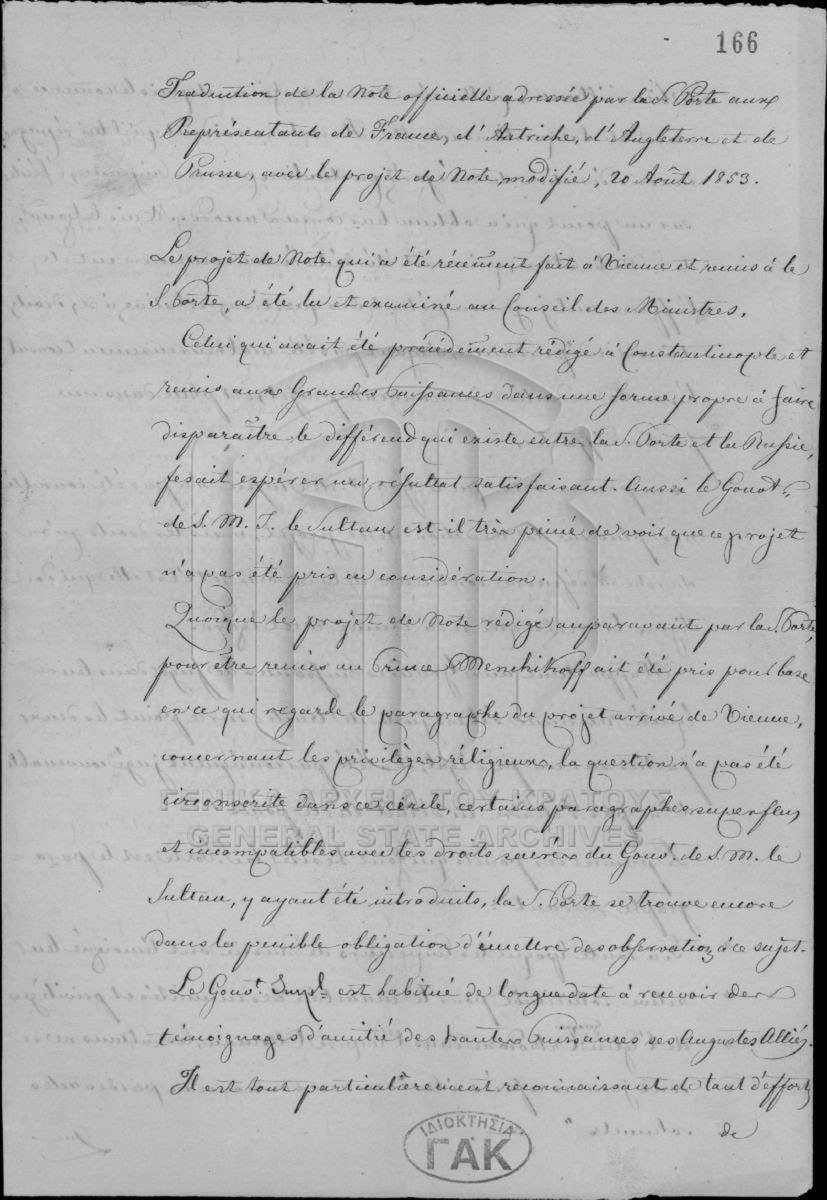 166
Traduction de la Note officielle adressée par la S. Porte aux
Représentants de France, d'Autriche, d'Angleterre et de
Prusse, avec le projet de Note modifié, 20 Août 1853.
Le projet de Note qui a été récemment fait à Vienne et remis à le
S. Porte, a été lu et examiné au Conseil des Ministres.
Celui qui avait été précédemment rédigé à Constantinople et
remis aux Grandes Puissances dans une forme propre à faire
disparaître le différend qui existe entre la S. Porte et la Russie,
fesait espérer un résultat satisfaisant. Aussi le Gouvt.
de S. M. I. le Sultan est-il très peiné de voir que ce projet
n'a pas été pris en considération.
Quoique le projet de Note rédigé auparavant par la S. Porte,
pour être remis au Prince Menchikoff ait été pris pour base
en ce qui regarde le paragraphe du projet arrivé de Vienne,
concernant les privilèges réligieux, la question n'a pas été
circonscrite dans ce cercle, certains paragraphes superflus
ΓΕΝΙΚΑ ΑΡΧΕΙΑ ΤΟΥ ΚΡΑΤΟΥΣ
GENERAL STATE ARCHIVES
et incompatibles avec les droits sacrés du Gouvt. de S. M. le
Sultan, y ayant été introduits, la S. Porte se trouve encore
dans la pénible obligation d'émettre des observations à ce sujet.
Le Gouvt. Impl. est habitué de longue date à recevoir des
témoignages d'amitié des hautes Puissances ses Augustes Alliés.
Il est tout particulièrement reconnaissant de tant d'efforts
de
ΙΔΙΟΚΤΗΣΙΑ
ΓΑΚ